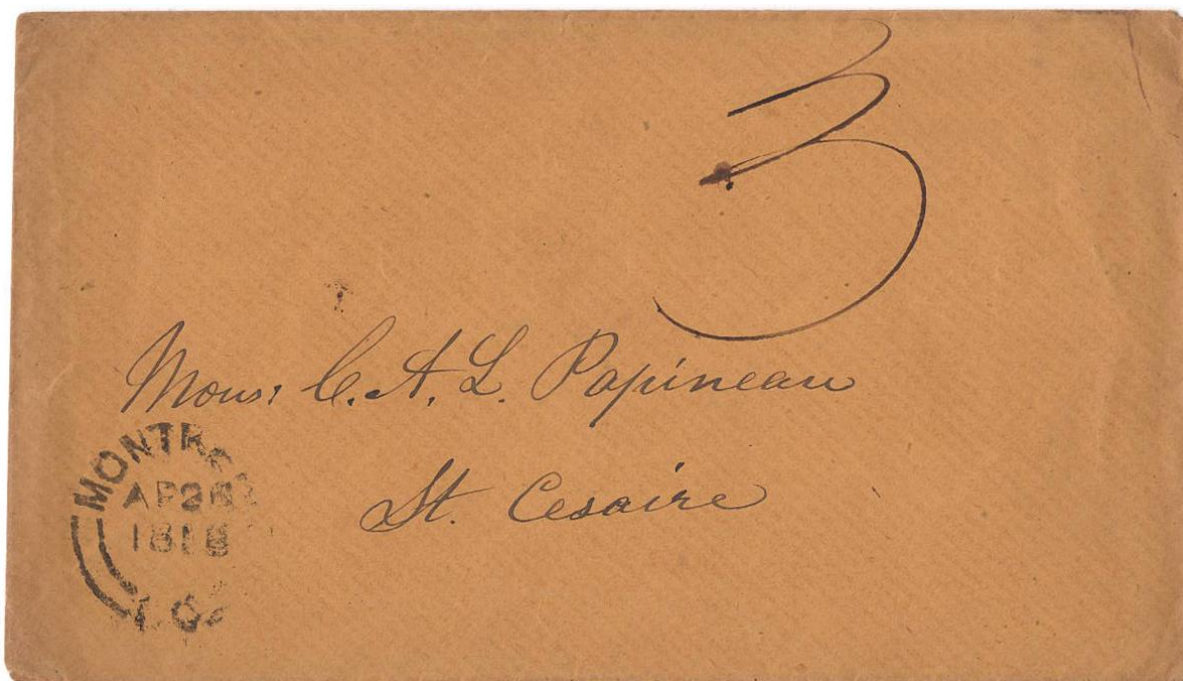 3
Mons: C. A. L. Papineau
St. Cesaire
MONTR
AP 26